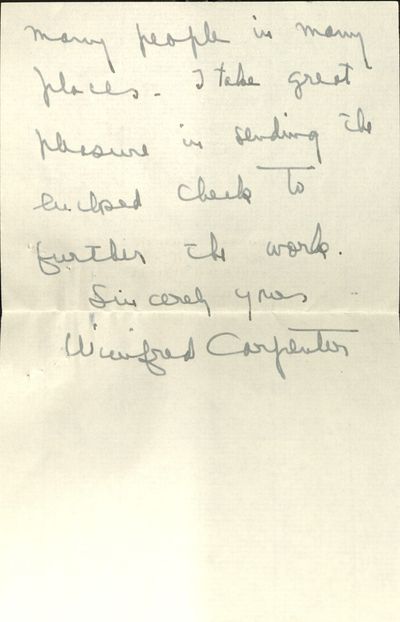 many people in many
places. I take great
pleasure in sending the
enclosed check to
further the work.
Sincerely yours
Winifred Carpenter